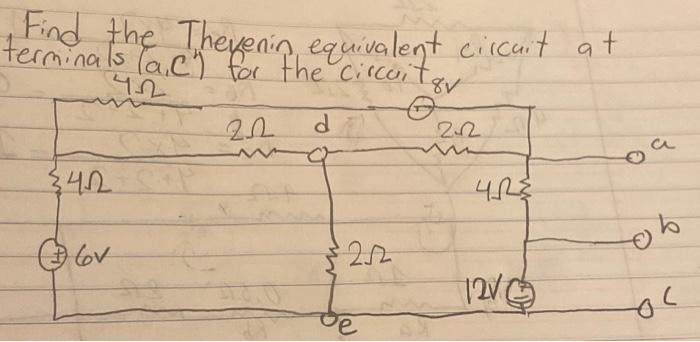 Find the Thevenin equivalent circuit at
terminals (a,c) for the circuit
4Ω 8V
2Ω d 2Ω
a
4Ω 4Ω
b
6V 2Ω
12V
e c